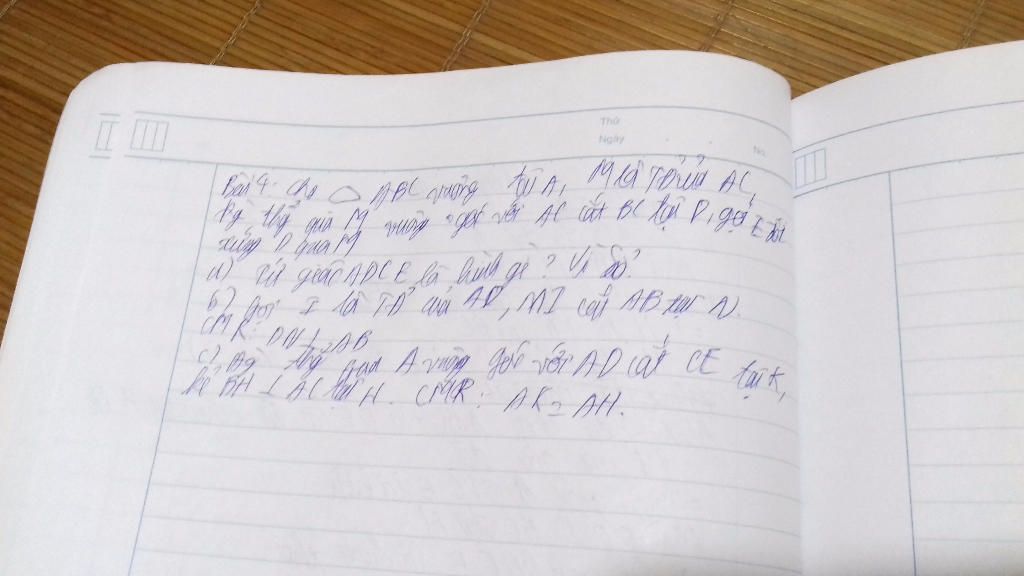 Thứ
Ngày
No.
Bài 4: Cho △ ABC vuông tại A, M là TĐ của AC,
Kẻ thg̉ qua M vuông góc với AC cắt BC tại D, gọi E đối
xứng D qua M
a) Tứ giác ADCE là hình gì? Vì sao?
b) Gọi I là TĐ của AD, MI cắt AB tại N.
CMR: DN ⊥ AB
c) Kẻ thg̉ qua A vuông góc với AD cắt CE tại K,
kẻ AH ⊥ BC tại H. CMR: AK = AH.